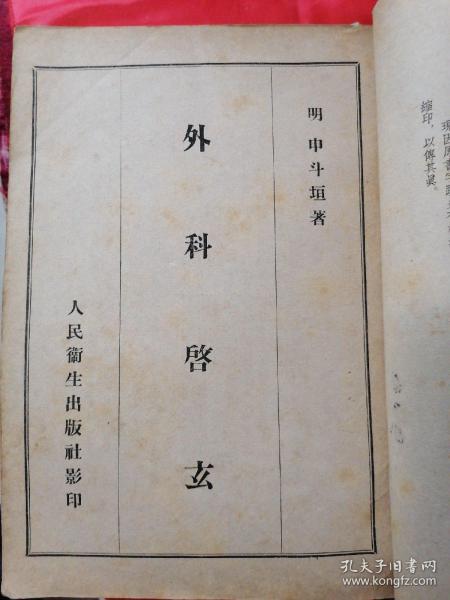 明 申斗垣著
外科啓玄
人民衞生出版社影印
縮印，以傳其眞。
孔夫子旧书网
www.kongfz.com